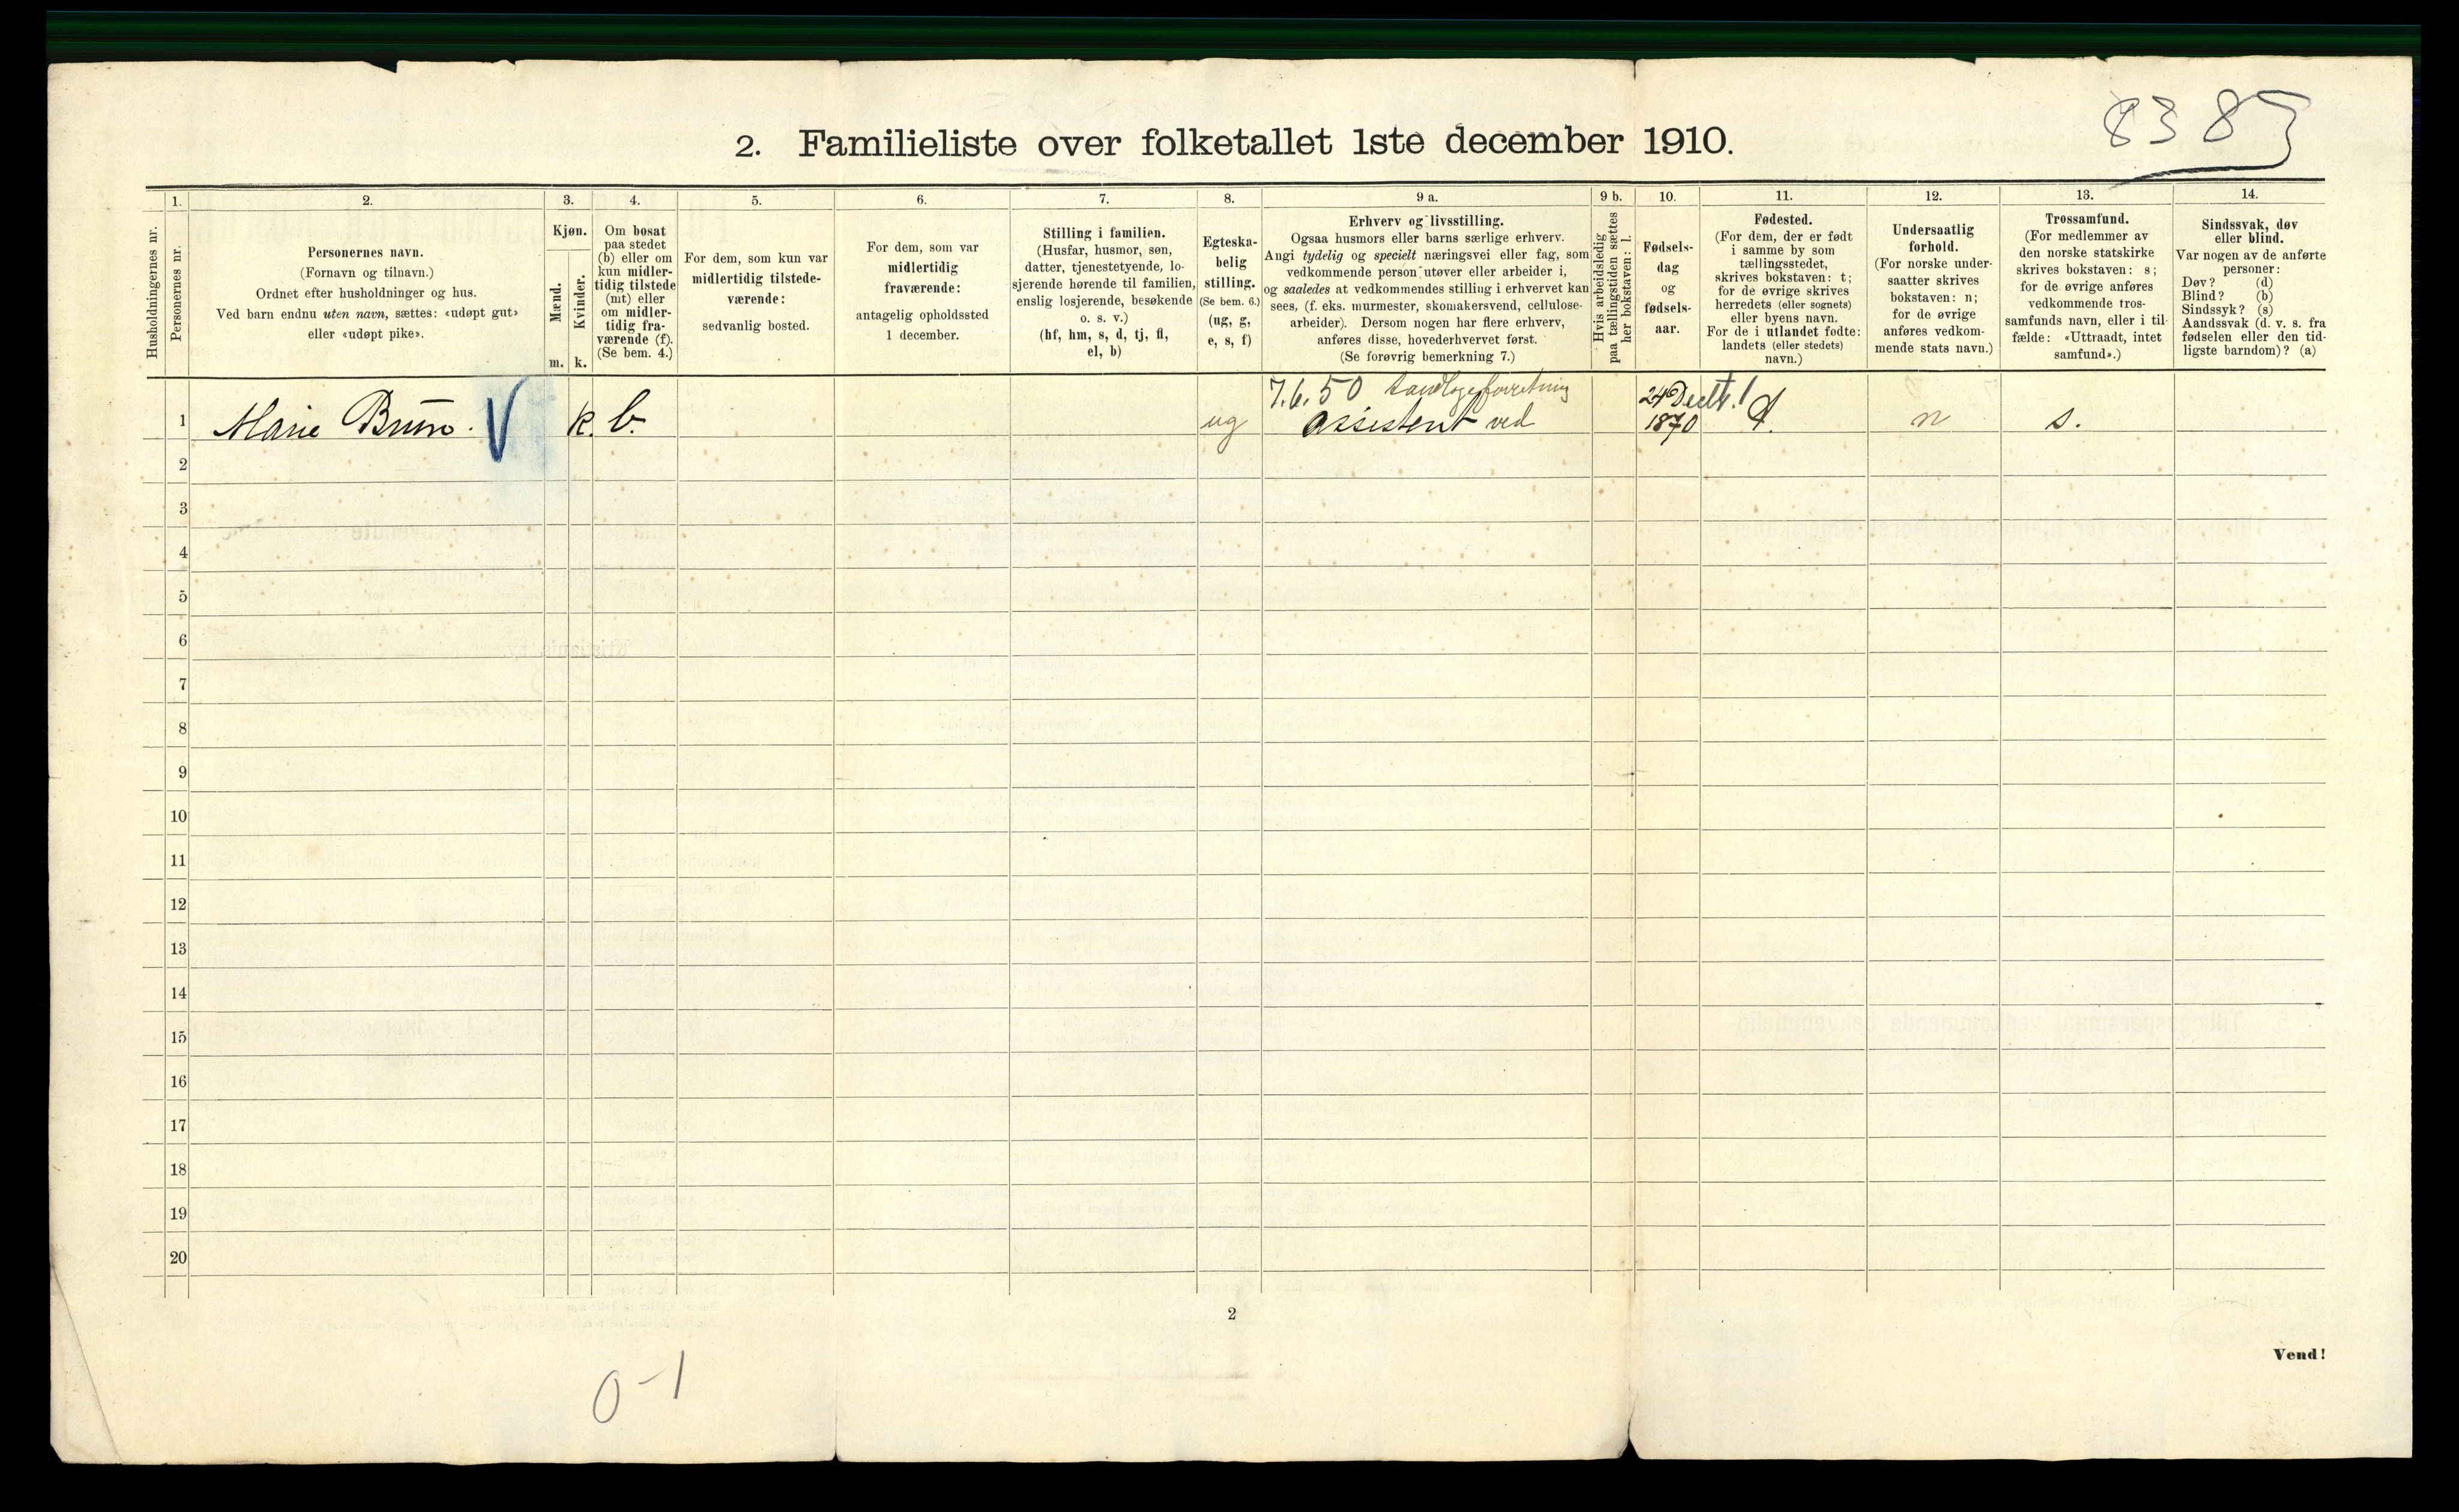 8383
2. Familieliste over folketallet 1ste december 1910.
Husholdningernes nr.
1.
Personernes nr.
2.
Personernes navn.
(Fornavn og tilnavn.)
Ordnet efter husholdninger og hus.
Ved barn endnu uten navn, sættes: «udøpt gut»
eller «udøpt pike».
3.
Kjøn.
Mænd.
Kvinder.
m. k.
4.
Om bosat
paa stedet
(b) eller om
kun midler-
tidig tilstede
(mt) eller
om midler-
tidig fra-
værende (f).
(Se bem. 4.)
5.
For dem, som kun var
midlertidig tilstede-
værende:
sedvanlig bosted.
6.
For dem, som var
midlertidig
fraværende:
antagelig opholdssted
1 december.
7.
Stilling i familien.
(Husfar, husmor, søn,
datter, tjenestetyende, lo-
sjerende hørende til familien,
enslig losjerende, besøkende
o. s. v.)
(hf, hm, s, d, tj, fl,
el, b)
8.
Egteska-
belig
stilling.
(Se bem. 6.)
(ug, g,
e, s, f)
9 a.
Erhverv og livsstilling.
Ogsaa husmors eller barns særlige erhverv.
Angi tydelig og specielt næringsvei eller fag, som
vedkommende person utøver eller arbeider i,
og saaledes at vedkommendes stilling i erhvervet kan
sees, (f. eks. murmester, skomakersvend, cellulose-
arbeider). Dersom nogen har flere erhverv,
anføres disse, hovederhvervet først.
(Se forøvrig bemerkning 7.)
9 b.
Hvis arbeidsledig
paa tællingstiden sættes
her bokstaven: l.
10.
Fødsels-
dag
og
fødsels-
aar.
11.
Fødested.
(For dem, der er født
i samme by som
tællingsstedet,
skrives bokstaven: t;
for de øvrige skrives
herredets (eller sognets)
eller byens navn.
For de i utlandet fødte:
landets (eller stedets)
navn.)
12.
Undersaatlig
forhold.
(For norske under-
saatter skrives
bokstaven: n;
for de øvrige
anføres vedkom-
mende stats navn.)
13.
Trossamfund.
(For medlemmer av
den norske statskirke
skrives bokstaven: s;
for de øvrige anføres
vedkommende tros-
samfunds navn, eller i til-
fælde: «Uttraadt, intet
samfund».)
14.
Sindssvak, døv
eller blind.
Var nogen av de anførte
personer:
Døv? (d)
Blind? (b)
Sindssyk? (s)
Aandssvak (d. v. s. fra
fødselen eller den tid-
ligste barndom)? (a)
7.6.50 tandlægeforretning 24 Decbr.
1 Marie Bruun. V k. b. ug assistent ved 1870 n s.
2
3
4
5
6
7
8
9
10
11
12
13
14
15
16
17
18
19
20
2
Vend!
0-1